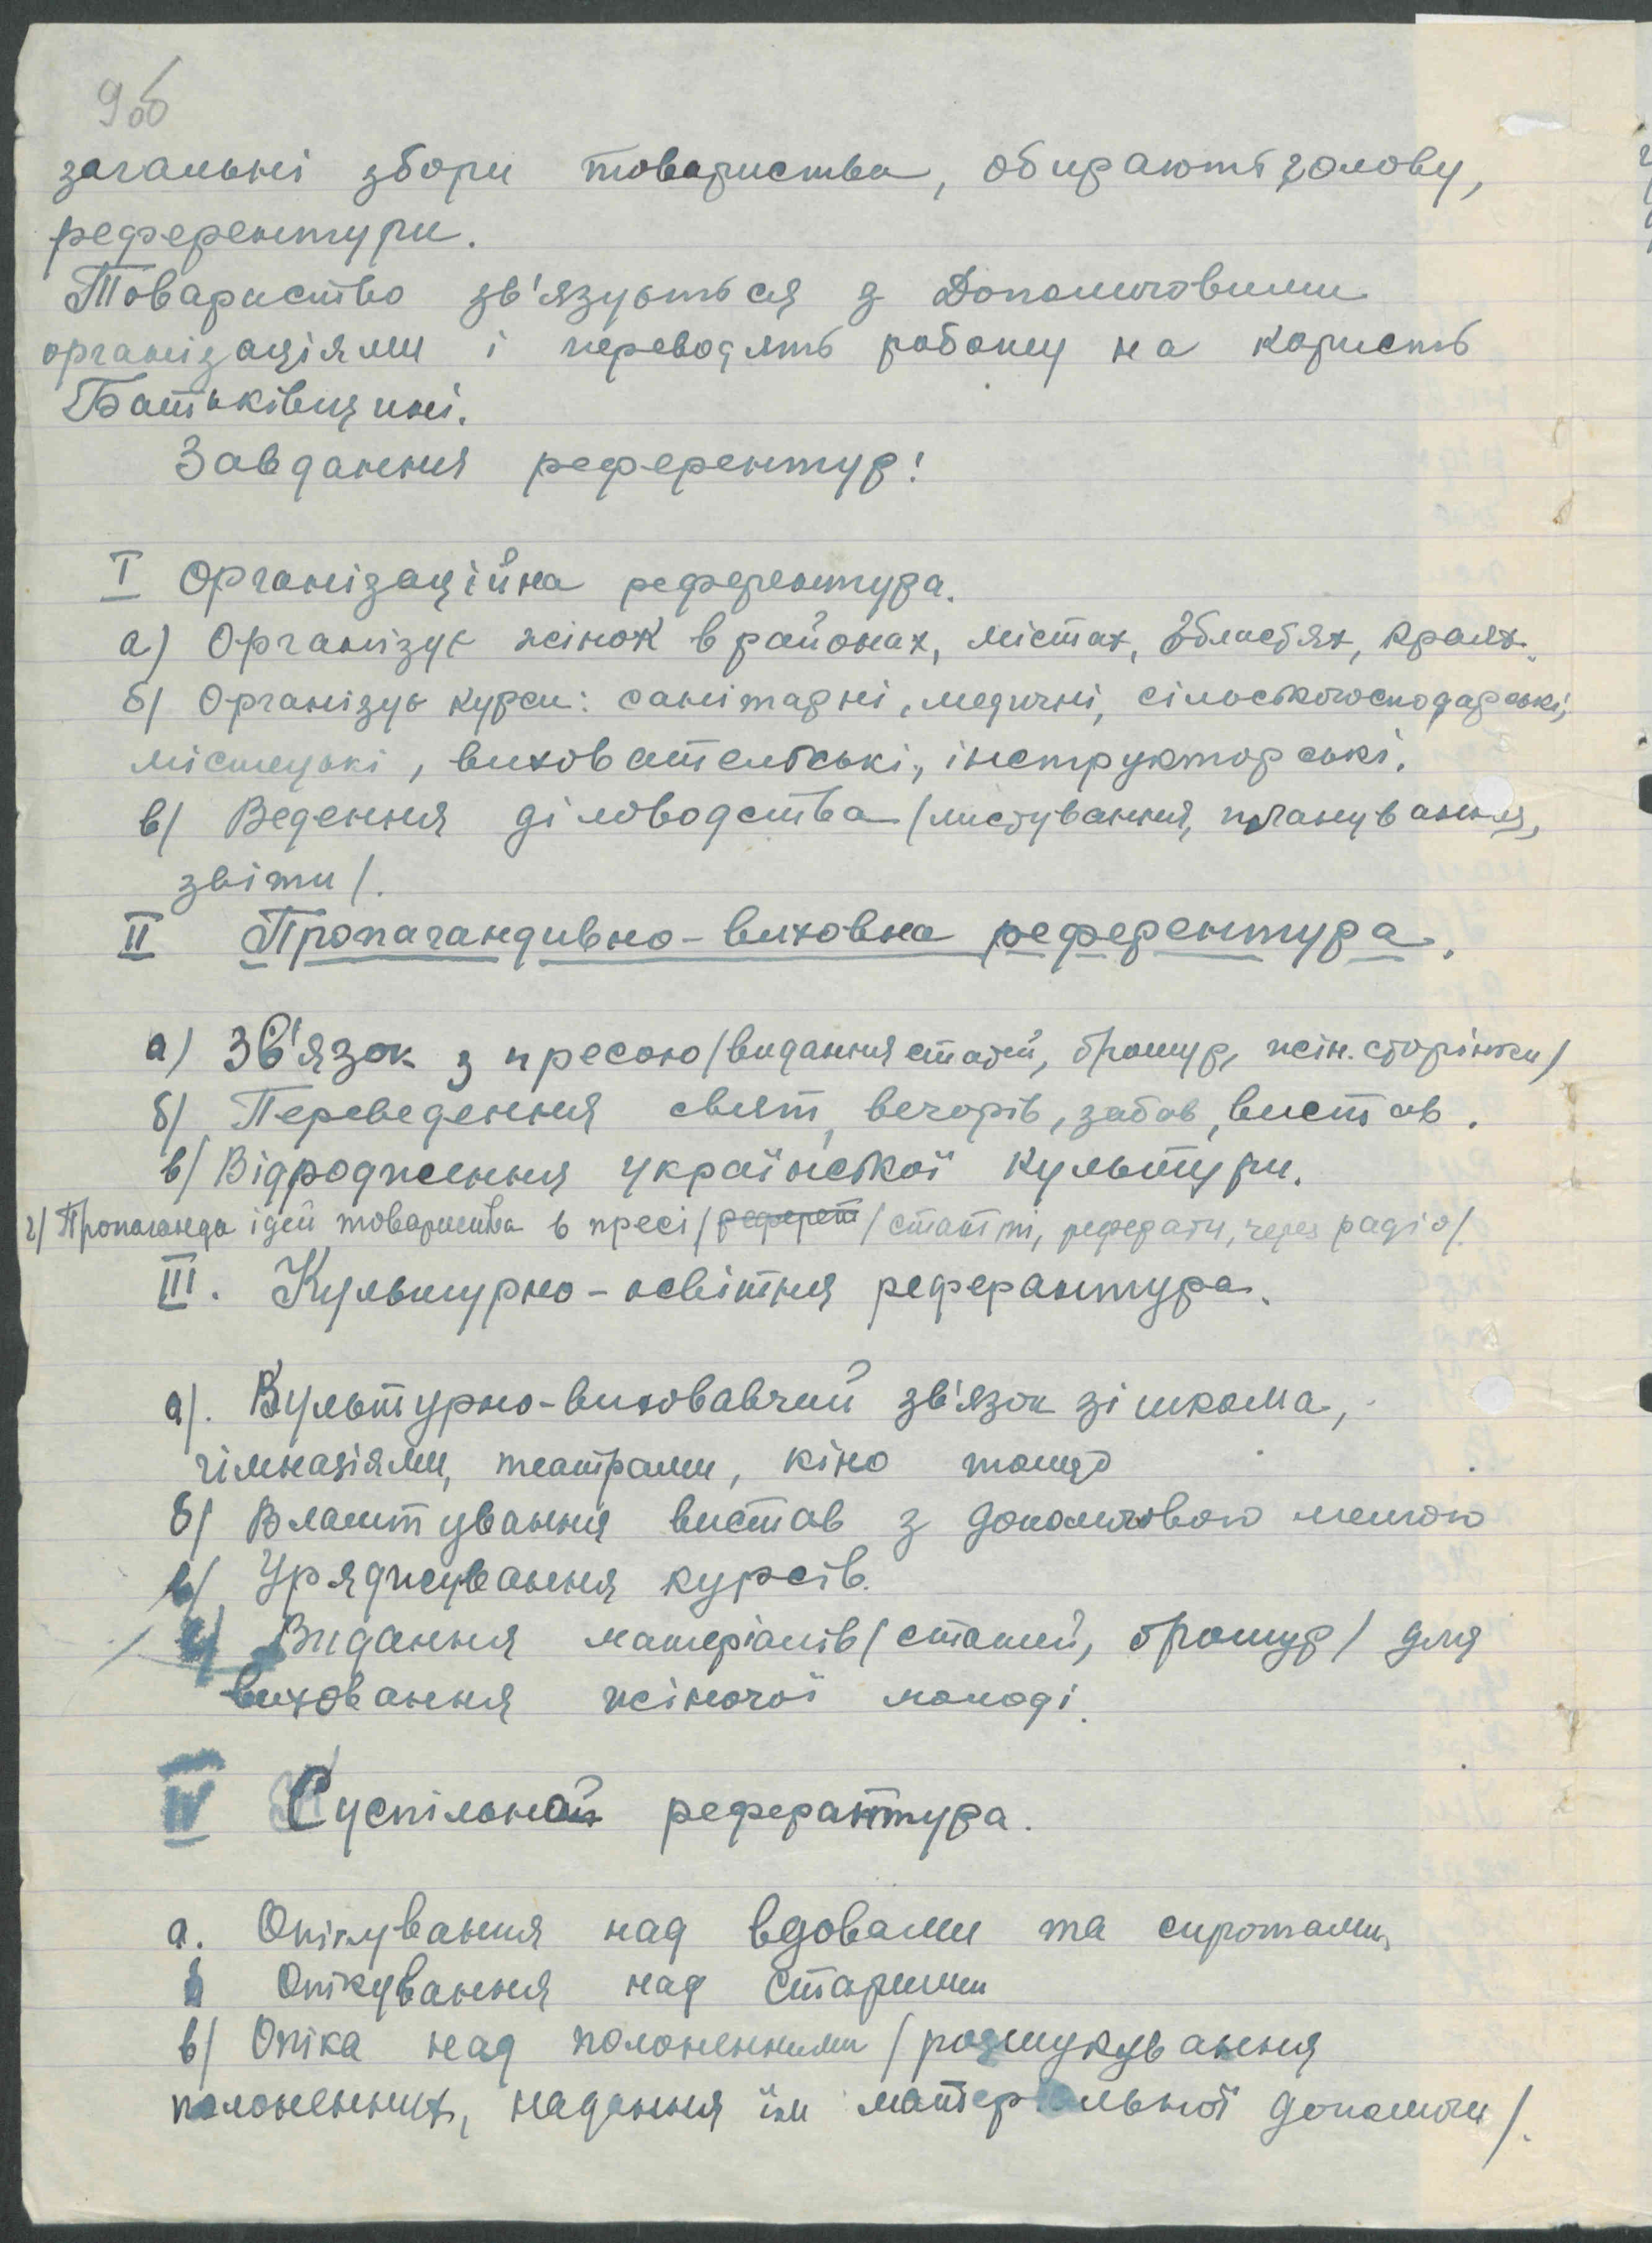 9об
загальні збори товариства, обирають голову,
референтури.
Товариство зв'язується з Допомоговими
організаціями і переводять роботу на користь
Батьківщині.
Завдання референтур!
I Організаційна референтура.
а) Організує жінок в районах, містах, областях, краях.
б/ Організує курси: санітарні, медичні, сільськогосподарські,
мистецькі, виховательські, інструкторські.
в/ Ведення діловодства /листування, планування,
звіти/.
II Пропагандивно-виховна референтура.
а) Зв'язок з пресою /видання статей, брошур, жін. сторінки/
б/ Переведення свят, вечорів, забав, вистав.
в/ Відродження української культури.
г/ Пропаганда ідей товариства в пресі /реферет/ статті, реферати, через радіо/.
III. Культурно-освітня реферантура.
а/. Культурно-виховавчий зв'язок зі шкома,
гімназіями, театрами, кіно тощо
б/ Влаштування вистав з допомоговою метою
в/ Уряджування курсів.
г/ Видання матеріалів /статей, брошур/ для
виховання жіночої молоді.
IV Суспільна реферантура.
а. Опікування над вдовами та сиротами,
б Опікування над старими
в/ Опіка над полоненними /розшукування
полоненних, надання їм матеріальної допомоги/.